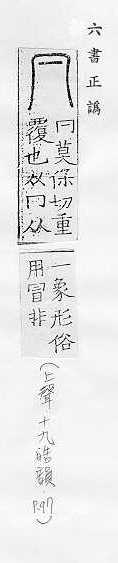 六書正譌
𠔼莫保切重
覆也从冂从
一象形俗
用冒非
(上聲十九皓韻 P.97)